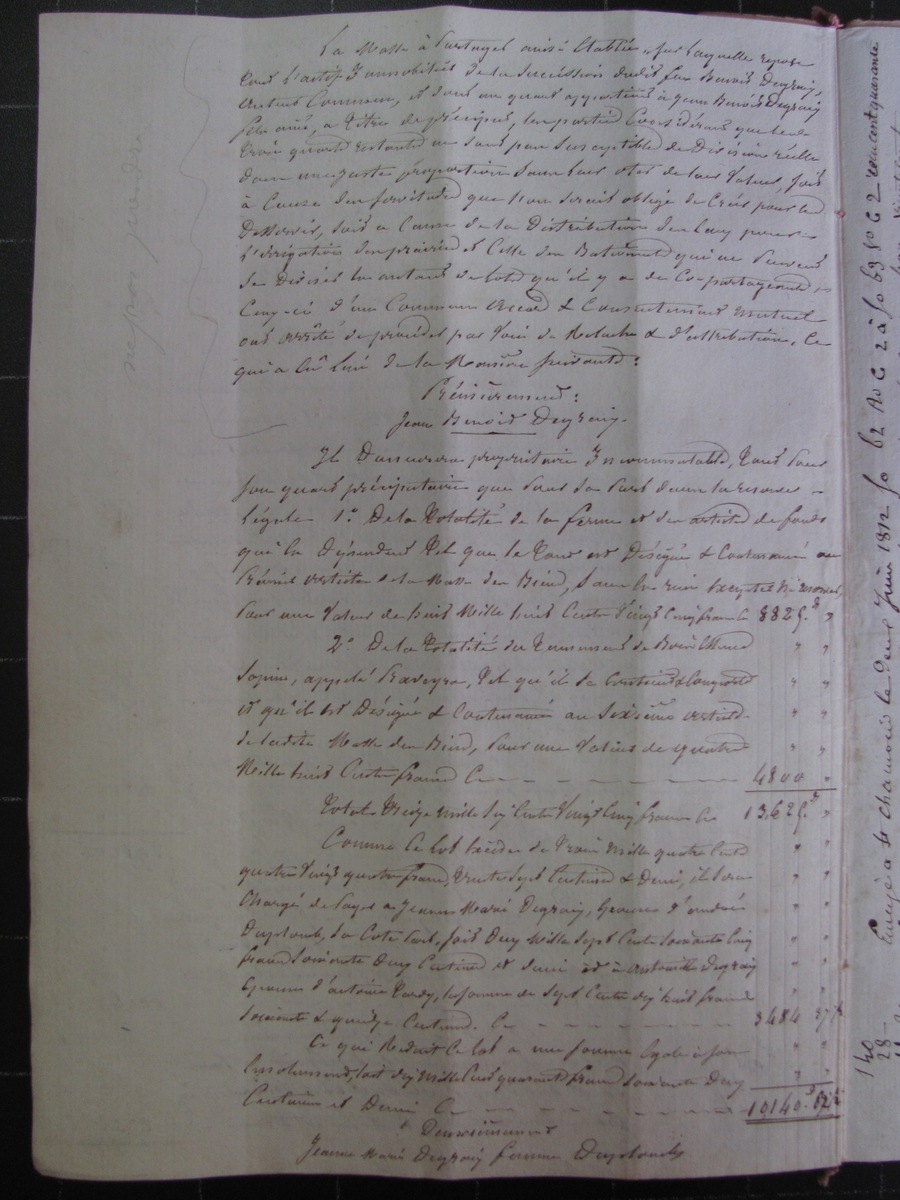 La Masse à Partager ainsi établie, sur laquelle repose
tout l'actif Immobilier de la succession dudit feu Benoit Degraix,
auteur Commun, et dont un quart appartient à Jean Benoit Degraix
fils ainé, a titre de préciput, les parties Considérant que les
trois quarts restants ne sont pas susceptibles de Division réelle
dans une juste proportion sans leur oter de leur Valeur, soit
à Cause des servitudes que l'on serait obligé de Créer pour les
Desservir, soit a Cause de la Distribution de l'eau pour
L'irrigation des prairies et Celle des Batiments qui ne peuvent
se Diviser en autant de lots qu'il y a de Co-partageants,
Ceux-ci d'un Commun accord & Consentement Mutuel
ont arrêté de procéder par Voie de Relache & d'attribution, Ce
qui a eu lieu de la Manière suivante :
Premièrement :
Jean Benoit Degraix.
Il Demeurera propriétaire Incommutable, tant pour
son quart préciputaire que pour sa part dans la réserve
Légale 1.° De la totalité de la ferme et des articles de fonds
qui en Dépendent tel que le tout est Désigné & Contenancé au
Premier article de la Masse des Biens, sans en rien excepter ni réserver,
pour une Valeur de huit Mille huit Cents Vingt Cinq francs 8825.f "
2.° De la totalité du tènement de Bois essence
Sapins, appelé Traveyra, tel qu'il se Contient & Comporte
et qu'il est Désigné & Contenancé au sixième article
de ladite Masse des Biens, pour une Valeur de quatre
Mille huit Cents francs Ci 4800 "
Total treize mille six Cents Vingt Cinq francs Ci 13,625.f "
Comme Ce lot excède de trois Mille quatre Cent
quatre Vingt quatre francs, trente sept Centimes & Demi, il sera
Chargé de payer a Jeanne Marie Degraix, épouse d'andré
Duplomb, sa Cote part, soit Deux Mille sept Cents soixante Cinq
francs soixante Deux Centimes et demi et à antoinette Degraix
épouse d'antoine Tardy, la somme de sept Cents dix huit francs
soixante & quinze Centimes. Ci 3484 37 ½
Ce qui Réduit Ce lot a une somme égale à son
Emolument, soit dix Mille Cent quarante francs soixante Deux
Centimes et Demi Ci 10140.f 62 ½
Deuxièmement
Jeanne Marie Degraix femme Duplomb
ne pas prendre